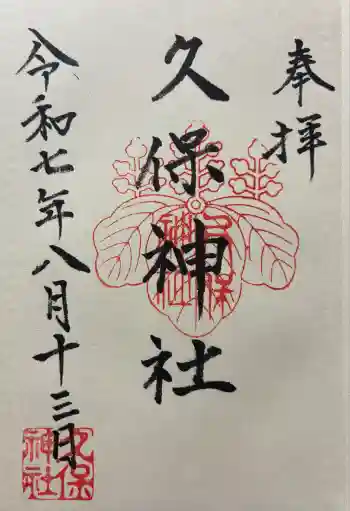 奉拝
久保神社
久保
神社
令和七年八月十三日
久保
神社